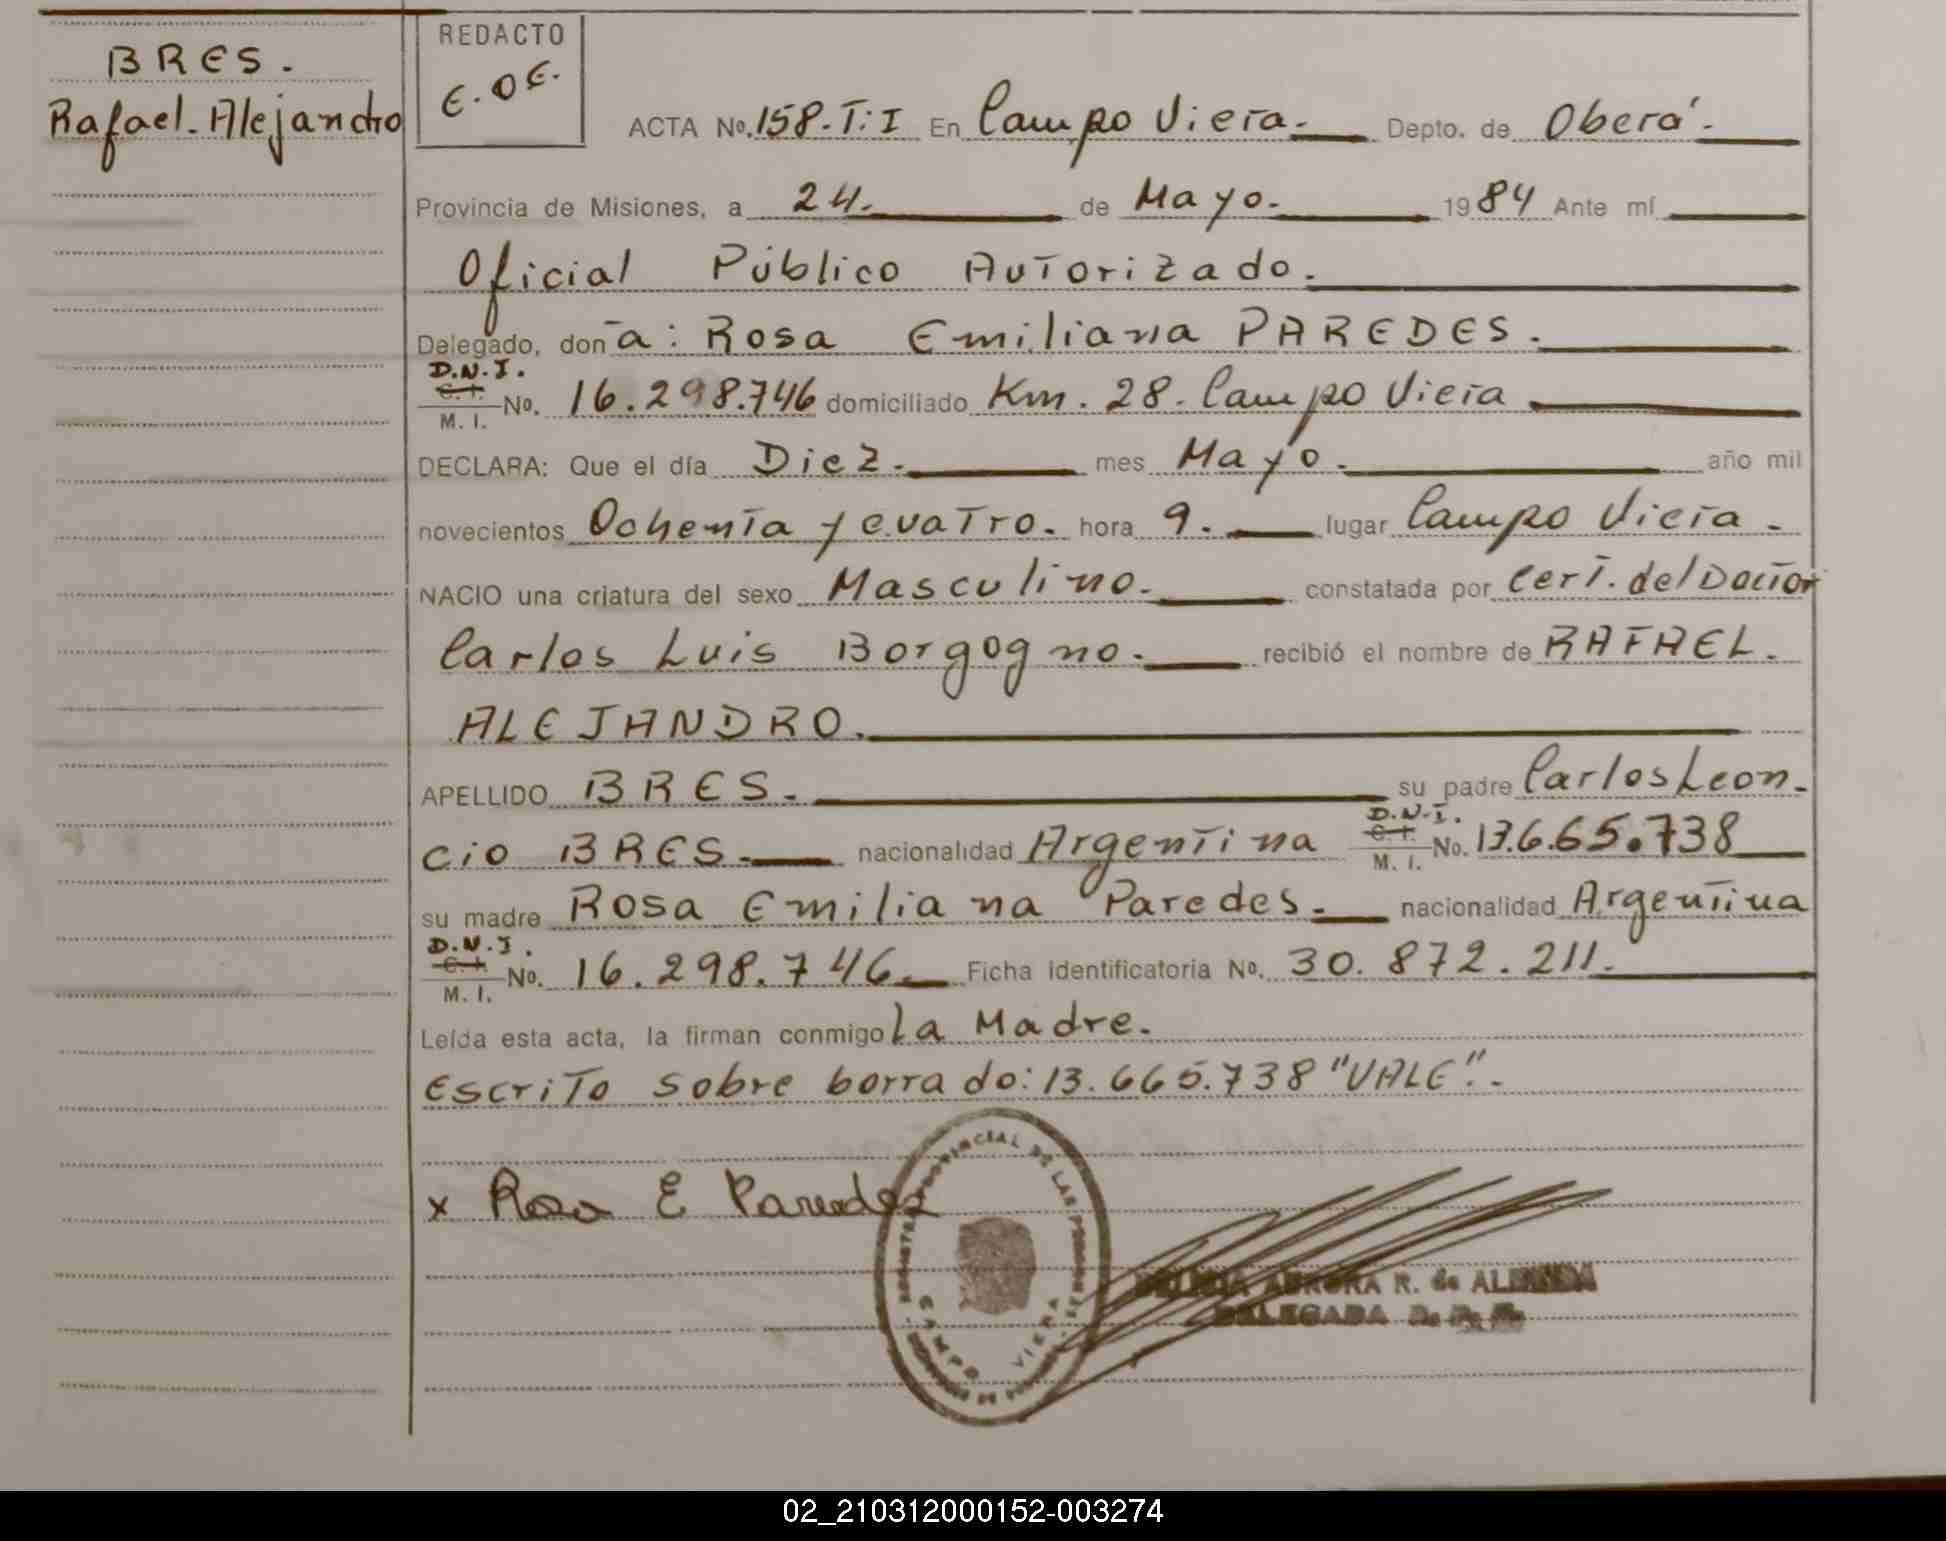 BRES.
Rafael. Alejandro
REDACTO
E. DE.
ACTA No. 158. T: I En Campo Viera. Depto. de Oberá.
Provincia de Misiones, a 24. de Mayo. 1984 Ante mí
Oficial Público Autorizado.
Delegado, don a: Rosa Emiliana PAREDES.
D.N.I.
C. I.
M. I.
No. 16.298.746 domiciliado Km. 28. Campo Viera
DECLARA: Que el día Diez. mes Mayo. año mil
novecientos Ochenta y cuatro. hora 9. lugar Campo Viera.
NACIO una criatura del sexo Masculino. constatada por Cert. del Doctor
Carlos Luis Borgogno. recibió el nombre de RAFAEL.
ALEJANDRO.
APELLIDO BRES. su padre Carlos Leon-
cio BRES. nacionalidad Argentina D.N.I. C. I. M. I. No. 13.665.738
su madre Rosa Emiliana Paredes. nacionalidad Argentina
D.N.I.
C. I.
M. I.
No. 16.298.746. Ficha identificatoria No. 30.872.211.
Leída esta acta, la firman conmigo la Madre.
Escrito sobre borrado: 13.665.738 "VALE".
x Rosa E Paredes
PROVINCIAL DE LAS PERSONAS
CAMPO VIERA
AURORA R. de ALMEIDA
DELEGADA
02_210312000152-003274